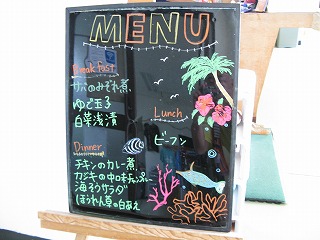 MENU
Breakfast
サバのみぞれ煮
ゆで玉子
白菜浅漬
Lunch
ビーフン
Dinner
チキンのカレー煮
カジキの中口キムチ
海そうサラダ
ほうれん草の白あえ